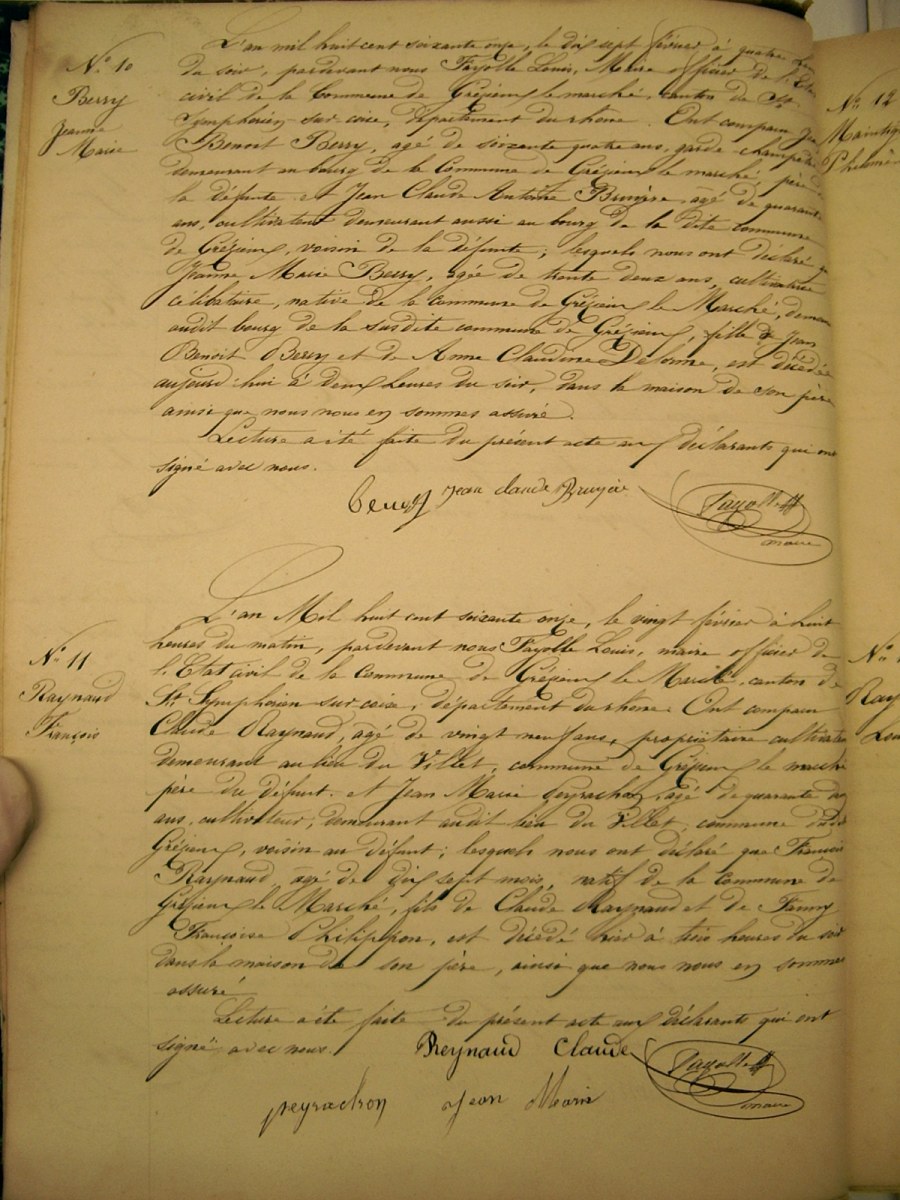 N° 10
Berry
Jeanne
Marie
L'an mil huit cent soixante onze, le dix sept février à quatre
du soir, pardevant nous Fayolle Louis, Maire officier de l'Etat
civil de la Commune de Grézieux le marché, canton de St
Symphorien-sur-coise, département du rhône. Ont comparu Jean
Benoit Berry, agé de soixante quatre ans, garde champêtre
demeurant au bourg de la Commune de Grézieux le marché, père de
la défunte et Jean Claude Antoine Bruyère, agé de quarante
ans, cultivateur demeurant aussi au bourg de la dite commune
de Grézieux, voisin de la défunte; lesquels nous ont déclaré que
Jeanne Marie Berry, agée de trente deux ans, cultivatrice
célibataire, native de la commune de Grézieux le Marché, demeu
audit bourg de la susdite commune de Grézieux, fille de Jean
Benoit Berry et de Anne Claudine Delorme, est décédée
aujourd'hui à deux heures du soir, dans la maison de son père
ainsi que nous nous en sommes assuré.
Lecture a été faite du présent acte aux déclarants qui ont
signé avec nous.
Berry Jean Claude Bruyère Fayolle
maire
N° 11
Raynaud
François
L'an Mil huit cent soixante onze, le vingt février à huit
heures du matin, pardevant nous Fayolle Louis, maire officier de
l'Etat civil de la commune de Grézieux le Marché, canton de
St Symphorien-sur-coise, département du rhône. Ont comparu
Claude Raynaud, agé de vingt neuf ans, propriétaire cultivateur
demeurant au lieu du Villet, commune de Grézieux le marché
père du défunt et Jean Marie Peyrachon, agé de quarante
ans, cultivateur, demeurant audit lieu du Villet, commune
Grézieux, voisin au défunt; lesquels nous ont déclaré que François
Raynaud agé de dix sept mois, natif de la commune de
Grézieux le Marché, fils de Claude Raynaud et de Fanny
Françoise Philippon, est décédé hier à trois heures du soir
dans la maison de son père, ainsi que nous nous en sommes
assuré
Lecture a été faite du présent acte aux déclarants qui ont
signé avec nous. Reynaud Claude Fayolle
maire
peyrachon Jean Marie
N° 12